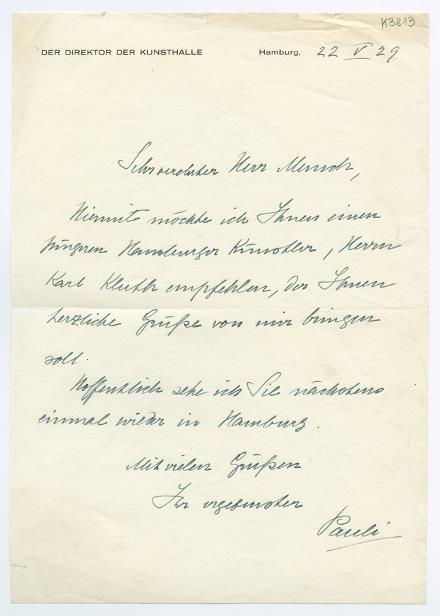 K3813
DER DIREKTOR DER KUNSTHALLE Hamburg, 22 V 29
Sehr verehrter Herr Munch,
Hiermit möchte ich Ihnen einen
jüngeren Hamburger Künstler, Herrn
Karl Kluth empfehlen, der Ihnen
herzliche Grüße von mir bringen
soll.
Hoffentlich sehe ich Sie nächstens
einmal wieder in Hamburg.
Mit vielen Grüßen
Ihr ergebenster
Pauli